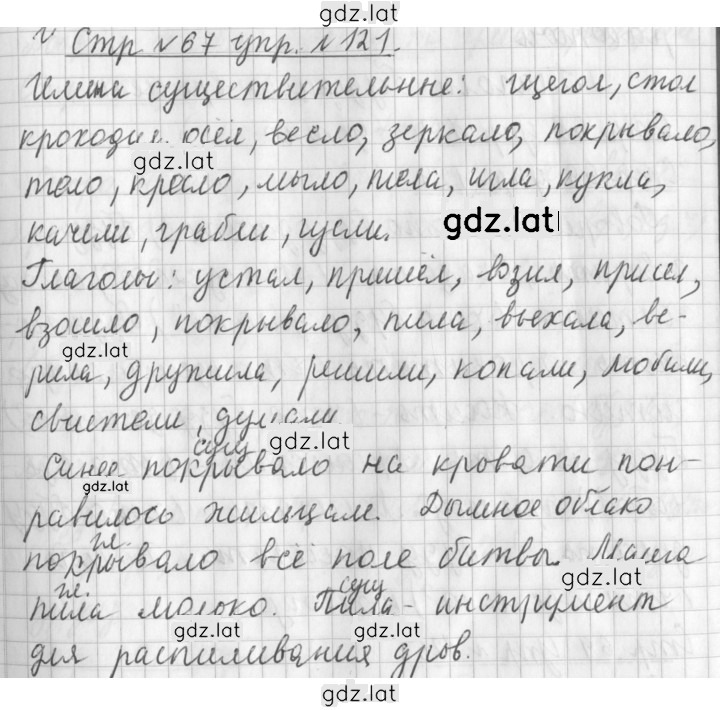 gdz.lat
Стр №67 упр. №121.
Имена существительнне: щегол, стол
кроходил осёл, весло, зеркало, покрывало,
gdz.lat
тело, кресло, мыло, пила, игла, кукла,
gdz.lat
качели, грабли, гусли.
Глаголы: устал, пришёл, возил, присел,
взошло, покрывало, пила, выехала, ве-
gdz.lat
рила, дружила, решили, копали, любили,
свистели, думали
gdz.lat
сущ
Синее покрывало на кровати пон-
gdz.lat
равилось жильцам. Дымное облако
гл.
покрывало всё поле битвы. Мама
gdz.lat
гл. сущ
пила молоко. Пила - инструмент
gdz.lat gdz.lat
для распиливания дров.
gdz.lat